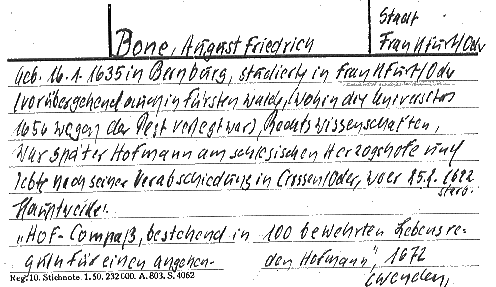 Stadt
Bone, August Friedrich
Frankfurt/Oder
Geb. 16.1.1635 in Bernburg, studierte in Frankfurt/Oder
(vorübergehend auch in Fürstenwalde, wohin die Universität
1656 wegen der Pest verlegt war), Rechtswissenschaften,
war später Hofmann am schlesischen Herzogshofe und
lebte nach seiner Verabschiedung in Crossen/Oder, wo er
starb.
Hauptwerke:
„Hof-Compaß, bestehend in 100 bewehrten Lebensre-
guln für einen angehen-den Hofmann", 1672
(wenden)
Neg. 10. Stichnote. 1.50. 232000. A. 803. S. 4062